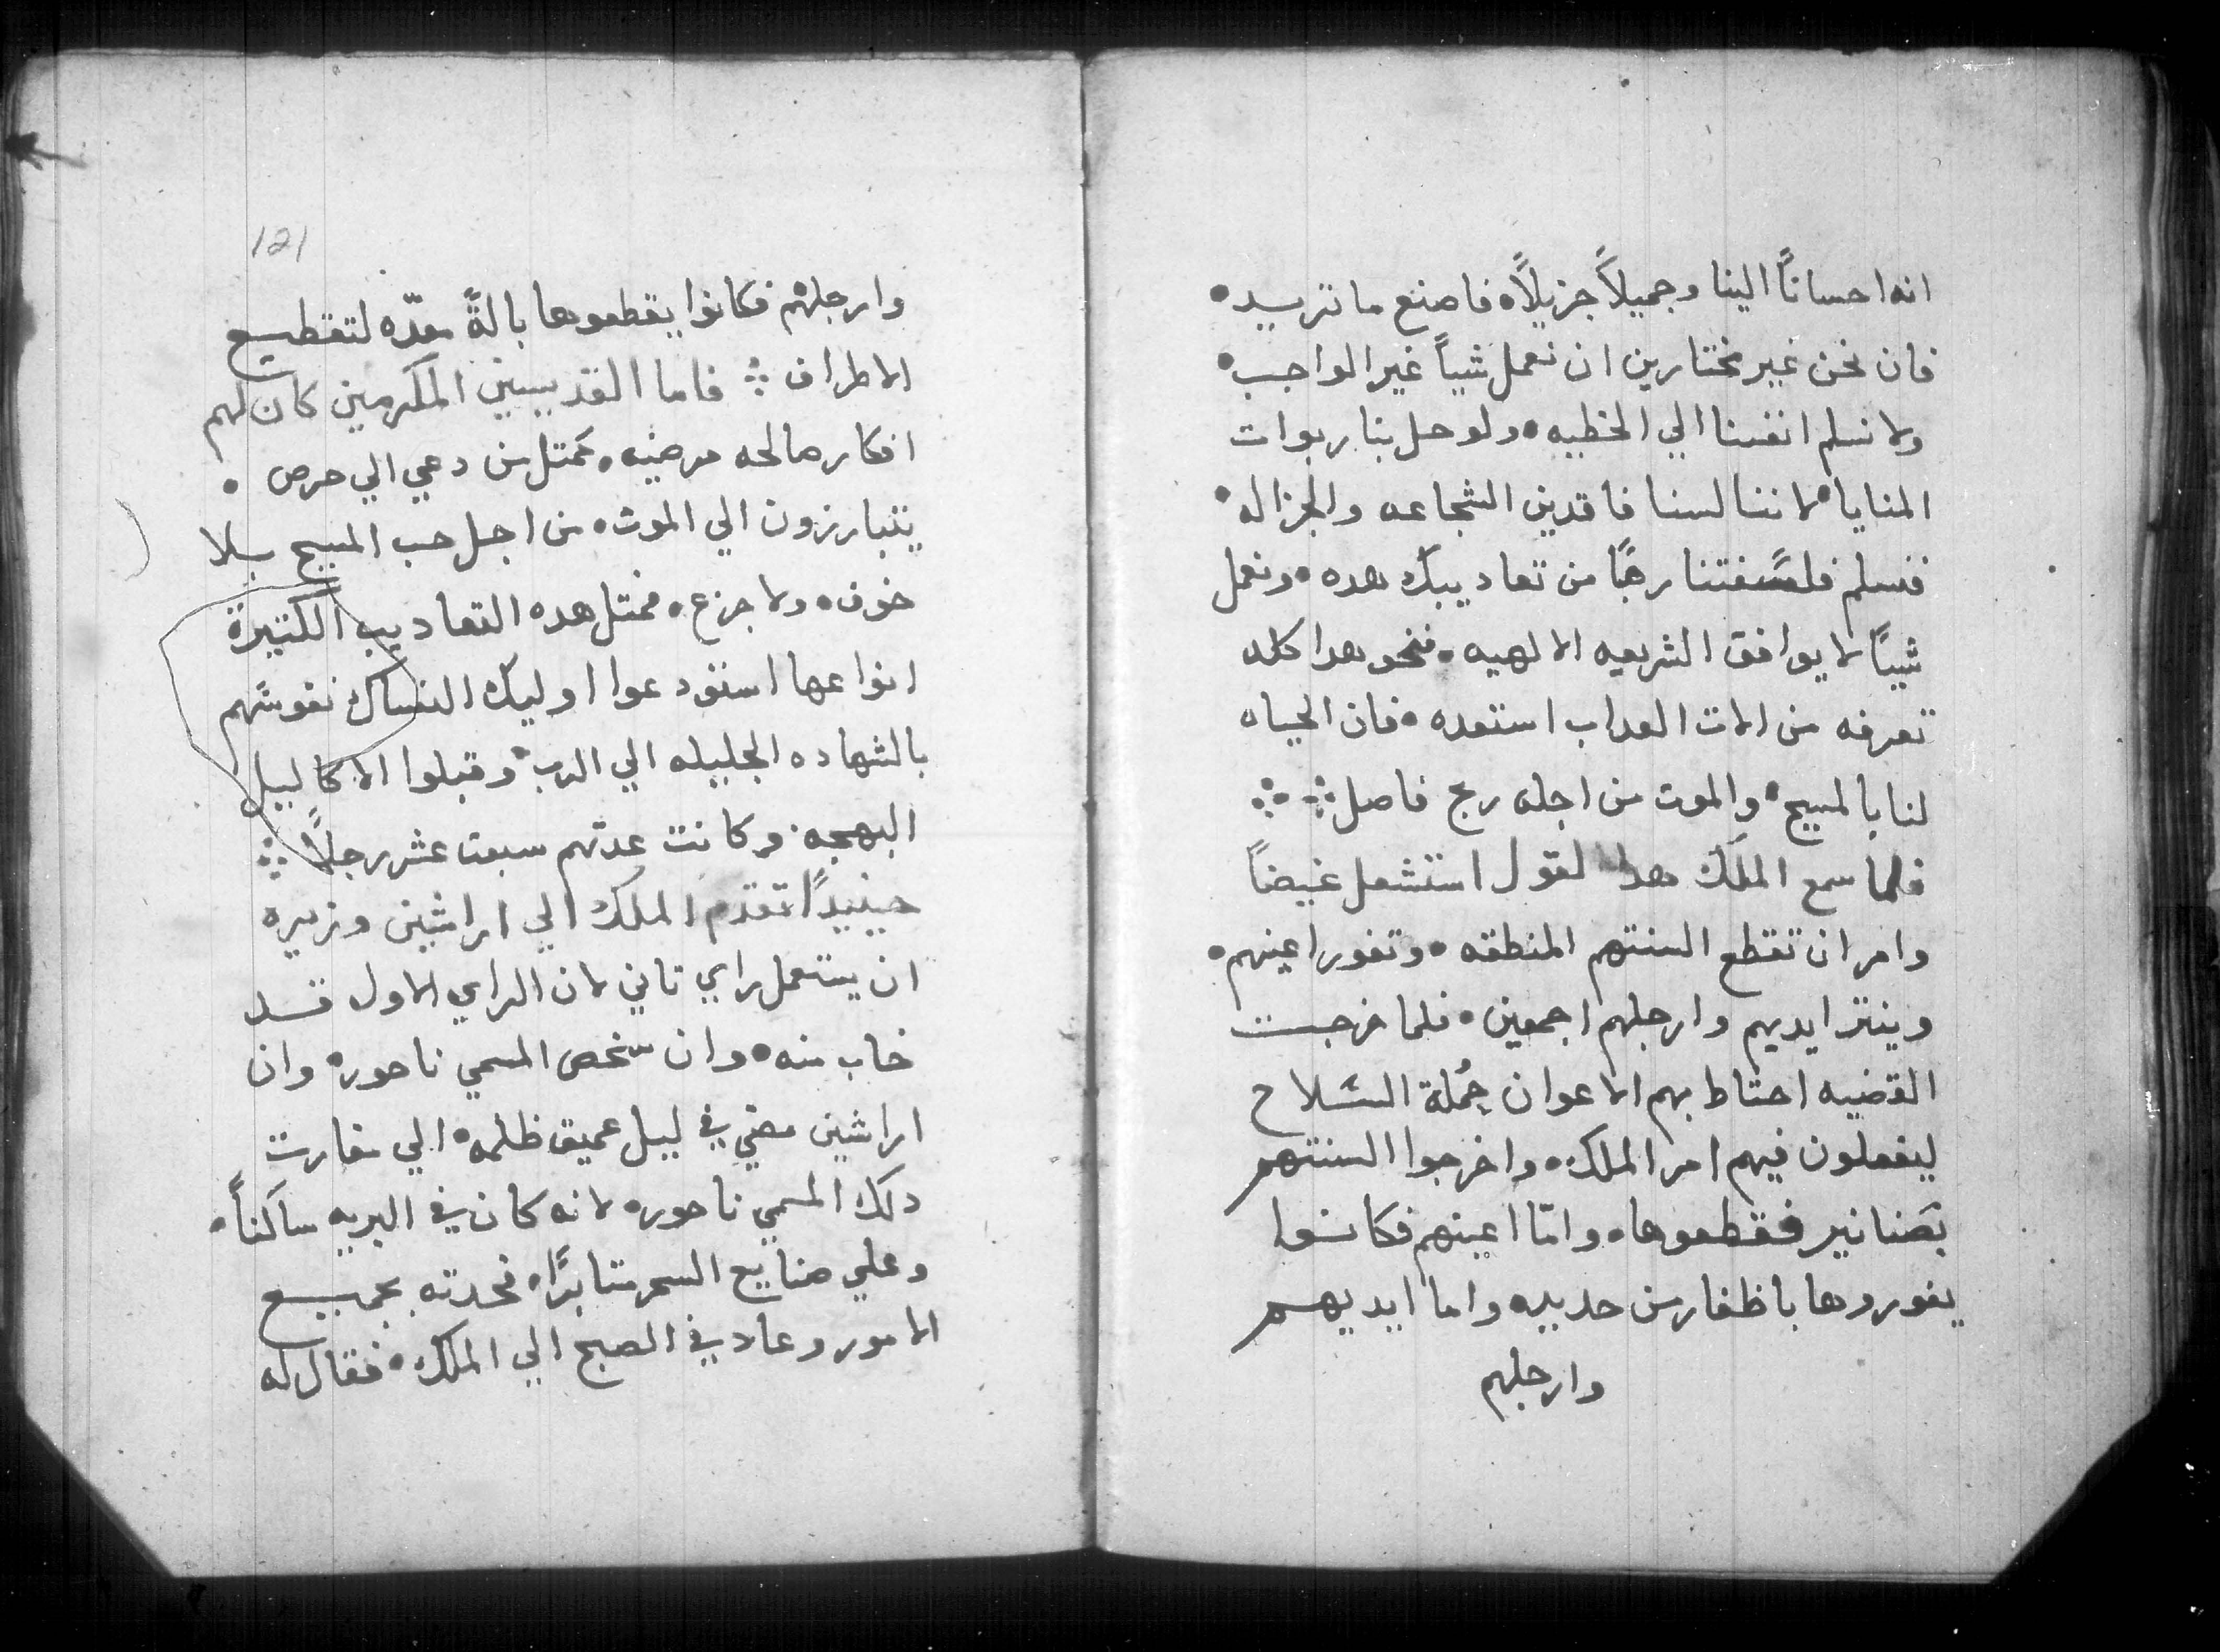 انه احساناً الينا وجميلاً جزيلاً، فاصنع ما تريد•
فان نحن غير مختارين ان نعمل شياً غير الواجب•
ولا نسلم انفسنا الي الخطيه• ولو حل بنا ربوات
المنايا• لاننا لسنا فاقدين الشجاعه والجزاله•
فنسلم فلسفتنا رهبًا من تعاديبك هده• ونعمل
شيياً لا يوافق الشريعه الالهيه• فنحو هدا كله
تعرفه من الات العداب استعده• فان الحياه
لنا بالمسيح• والموت من اجله ربح فاضل ∴ ∴
فلما سمع الملك هدا القول استشعل غيضاً
وامر ان تقطع السنتهم المنطقه• وتغور اعينهم•
وينتر ايديهم وارجلهم اجمعين• فلما خرجت
القضيه احتاط بهم الاعوان جُملة السَلاح
ليفعلون فيهم امر الملك• واخرجوا السنتهم
بصنانير فقطعوها• وامّا اعينهم فكانوا
يغوروها باظفار من حديد• واما ايديهم
وارجلهم
121
وارجلهم فكانوا يقطعوها بالةً معدّه لتقطيع
الاطراف ∴ فاما القديسين المكرمين كان لهم
افكار صالحه مرضيه• كمتل من دعي الي حرص •
يتبارزون الي الموت• من اجل حب المسيح بلا
خوف• ولا جزع• فمتل هده التعاديب الكتيرة
انواعها استودعوا اوليك النساك نفوسَهم
بالشهاده الجليله الي الرب• وقبلوا الاكاليل
البهجه• وكانت عدتهم سبعت عشر رجلاً ∴
حينيدًا تقدم الملك الي اراشين وزيره
ان يستعمل راي تاني لان الراي الاول قد
خاب منه• وان شخص المسمي ناحور• وان
اراشين مضي في ليل عميق ظلمه• الي مغارت
دلك المسمي ناحور• لانه كان في البريه ساكناً•
وعلي صنايع السحر متابرًا• فحدته بجميع
الامور وعاد في الصبح الي الملك• فقال له